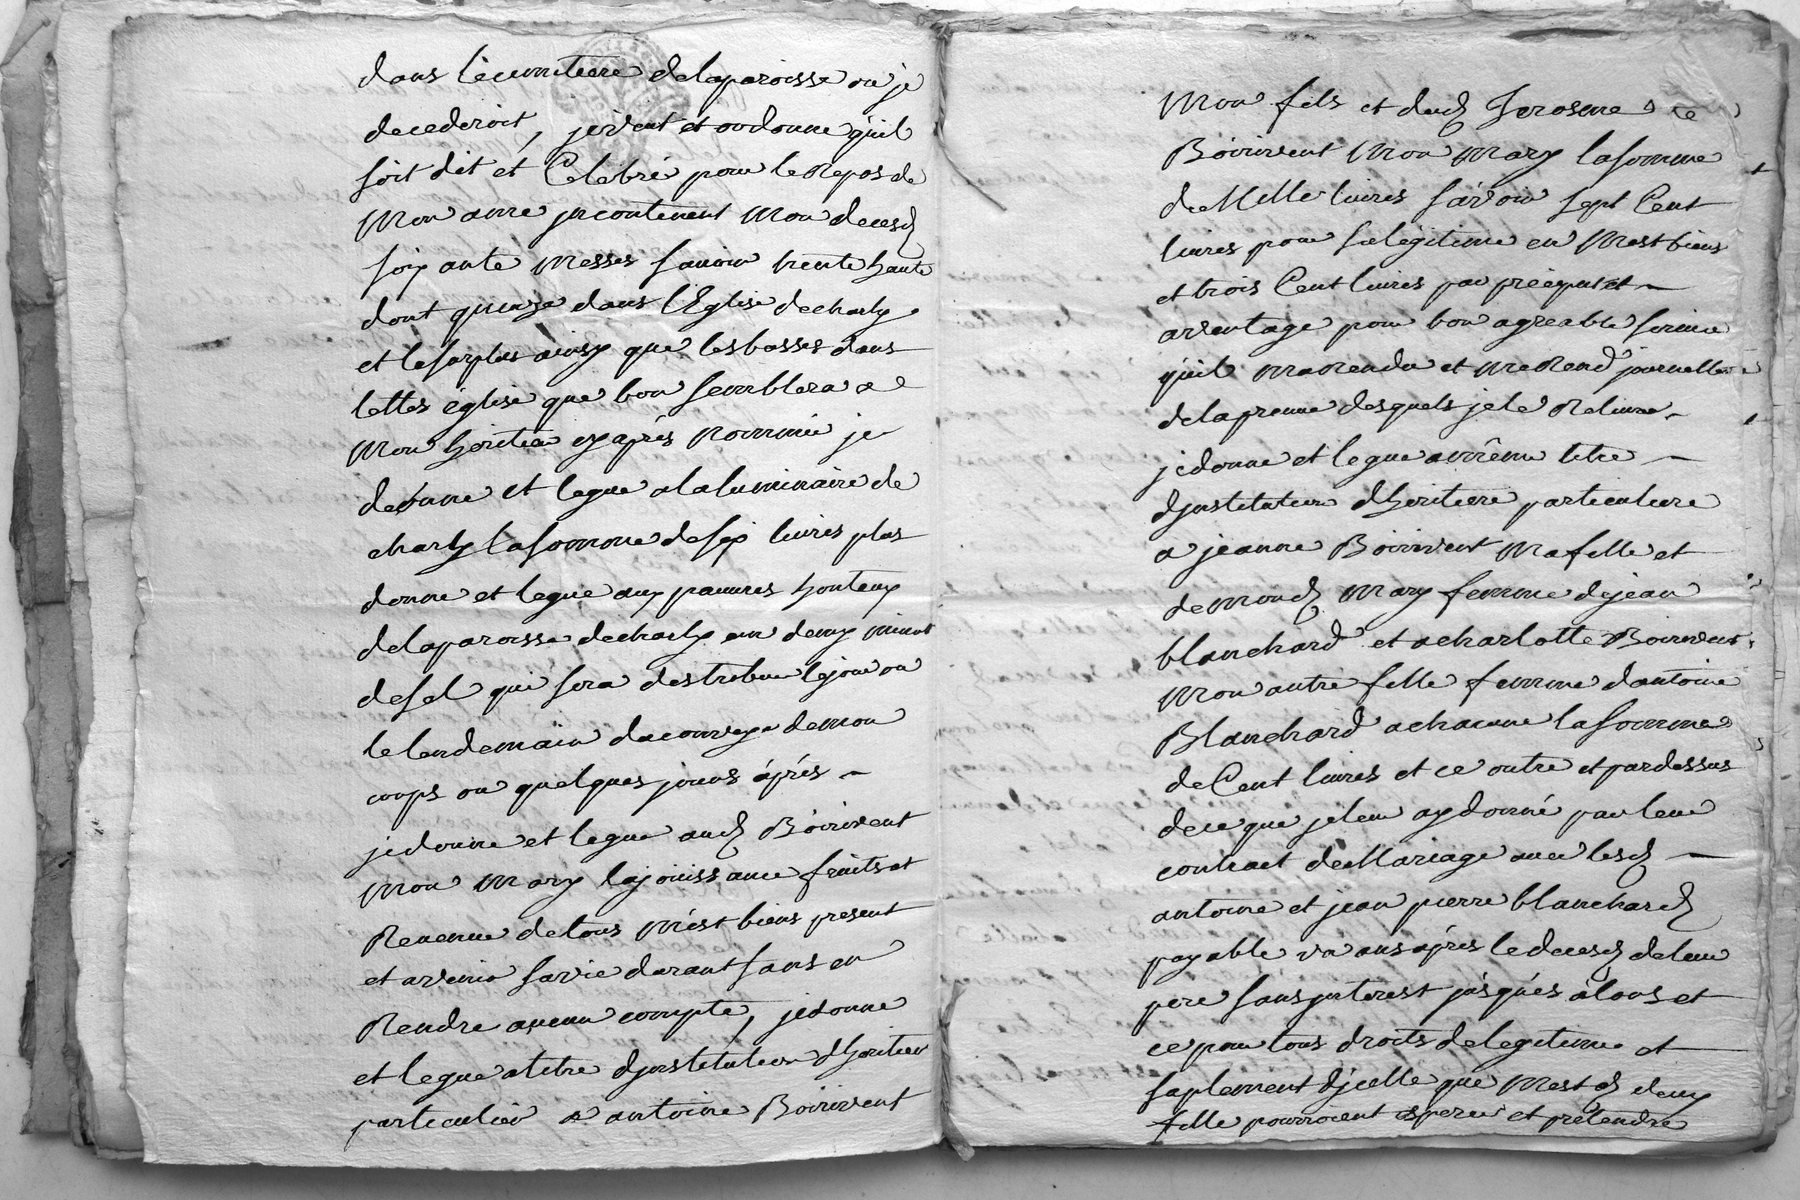 dans lecimitiere delaparoisse ou je
decederoit, jeveut et ordonne quil
soit dit et Celebré pour le Repos de
Mon ame jncontinent Mon deces
soix ante Messes savoir trente haute
dont quinze dans lEglise decharly
et lesurplus ainsy que lesbasses dans
telles église que bon semblera a
Mon heritier cyaprés Nommé je
donne et legue alaluminaire de
charly lasomme desix livres plus
donne et legue aux pauvres honteux
delaparoisse decharly un demy minot
desel qui sera destribue lejour ou
lelendemain demon
corps ou quelques jours áprés
jedonne et legue aud Boirivent
Mon Mary lajouissance fruits et
Revenue detous mést biens present
et avenir savie durant sans en
Rendre aucun compte, jedonne
et legue atitre djnstitution dheritier
particulier a antoine Boirivent
Mon fils et dud Jerosme
Boirivent Mon Mary lasomme
deMille livres sávoir sept Cent
livres pour salegitime en Mest biens
et trois Cent livres par préciput et
avantage pour bon agreable service
quil marendu et meRend journellem
delapreuve desquels jele Relieve
jedonne et legue amême titre
djnstitution dheritiere particuliere
a jeanne Boirivent Mafille et
demond Mary femme dejean
blanchard et acharlotte Boirivent
Mon autre fille femme dantoine
Blanchard achacune lasomme
deCent livres et ce outre et pardessus
dece que jeleur aydonné par leur
contract deMariage avec lesd
antoine et jean pierre blanchard
payable un ans áprés ledeces deleur
pere sans jnterest jusqués álors et
ce pour tous droits delegitime et
suplement djcelle que Mesd deux
fille pourroient esperer et prétendre